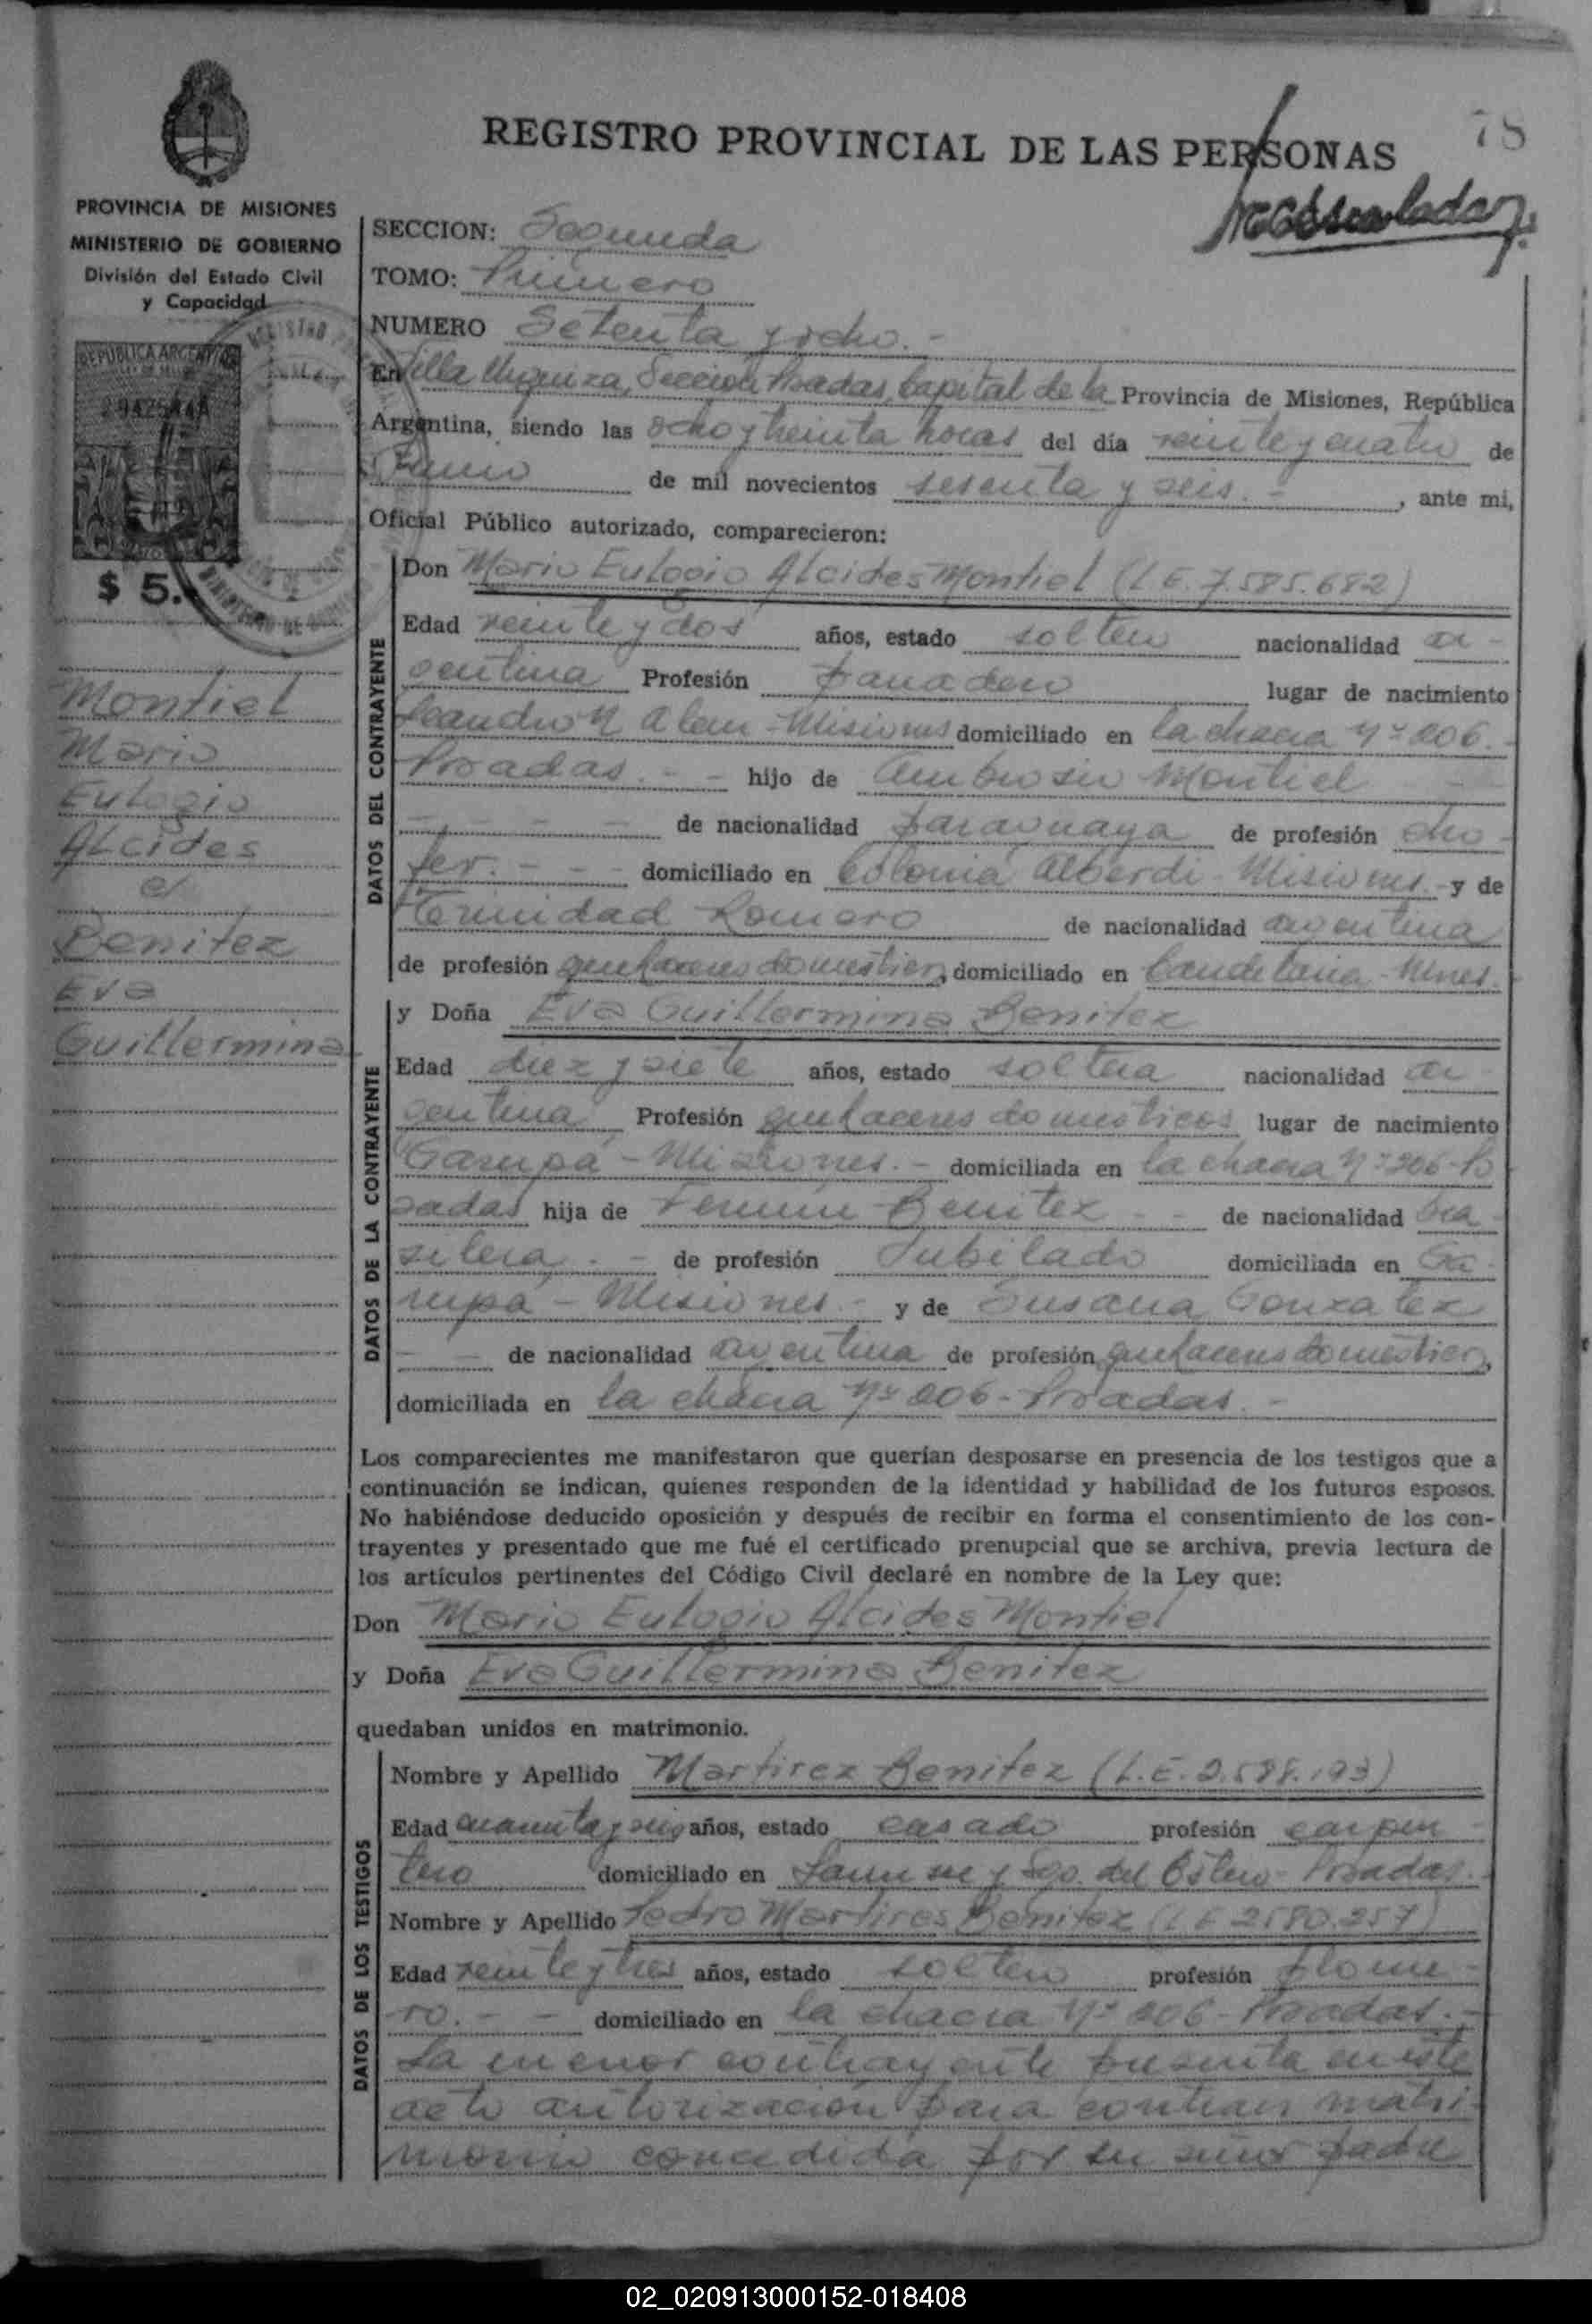 REGISTRO PROVINCIAL DE LAS PERSONAS
78
PROVINCIA DE MISIONES
MINISTERIO DE GOBIERNO
División del Estado Civil
y Capacidad
REPUBLICA ARGENTINA
$ 5.
Montiel
Mario
Eulogio
Alcides
c/
Benitez
Eva
Guillermina
SECCION: Segunda
TOMO: Primero
NUMERO Setenta y ocho.-
En Villa Urquiza, Sección Posadas, Capital de la Provincia de Misiones, República
Argentina, siendo las ocho y treinta horas del día veinte y cuatro de
Junio de mil novecientos sesenta y seis.- , ante mi,
Oficial Público autorizado, comparecieron:
DATOS DEL CONTRAYENTE
Don Mario Eulogio Alcides Montiel (L.E. 7.585.682)
Edad veinte y dos años, estado soltero nacionalidad ar-
gentina Profesión panadero lugar de nacimiento
Leandro N. Alem - Misiones domiciliado en la chacra Nº 206.-
Posadas.- - hijo de Ambrosio Montiel - -
- - - - de nacionalidad paraguaya de profesión cho-
fer.- - - domiciliado en Colonia Alberdi - Misiones.- y de
Trinidad Romero de nacionalidad argentina
de profesión quehaceres domésticos, domiciliado en Candelaria - Mnes.
DATOS DE LA CONTRAYENTE
y Doña Eva Guillermina Benitez
Edad diez y siete años, estado soltera nacionalidad ar-
gentina Profesión quehaceres domésticos lugar de nacimiento
Garupá - Misiones.- domiciliada en la chacra Nº 206 - Po-
sadas hija de Fermín Benitez - - de nacionalidad bra-
silera.- - de profesión Jubilado domiciliada en Ga-
rupá - Misiones.- y de Susana Gonzalez
- - de nacionalidad argentina de profesión quehaceres domésticos,
domiciliada en la chacra Nº 206 - Posadas.-
Los comparecientes me manifestaron que querían desposarse en presencia de los testigos que a
continuación se indican, quienes responden de la identidad y habilidad de los futuros esposos.
No habiéndose deducido oposición y después de recibir en forma el consentimiento de los con-
trayentes y presentado que me fué el certificado prenupcial que se archiva, previa lectura de
los artículos pertinentes del Código Civil declaré en nombre de la Ley que:
Don Mario Eulogio Alcides Montiel
y Doña Eva Guillermina Benitez
quedaban unidos en matrimonio.
DATOS DE LOS TESTIGOS
Nombre y Apellido Martirez Benitez (L.E. 2.588.193)
Edad cuarenta y seis años, estado casado profesión carpin-
tero domiciliado en y Sgo. del Estero - Posadas.-
Nombre y Apellido Pedro Martires Benitez (L.E. 2580.257)
Edad veinte y tres años, estado soltero profesión plome-
ro.- - domiciliado en la chacra Nº 206 - Posadas.-
La menor contrayente presenta en este
acto autorización para contraer matri-
monio concedida por su señor padre
02_020913000152-018408